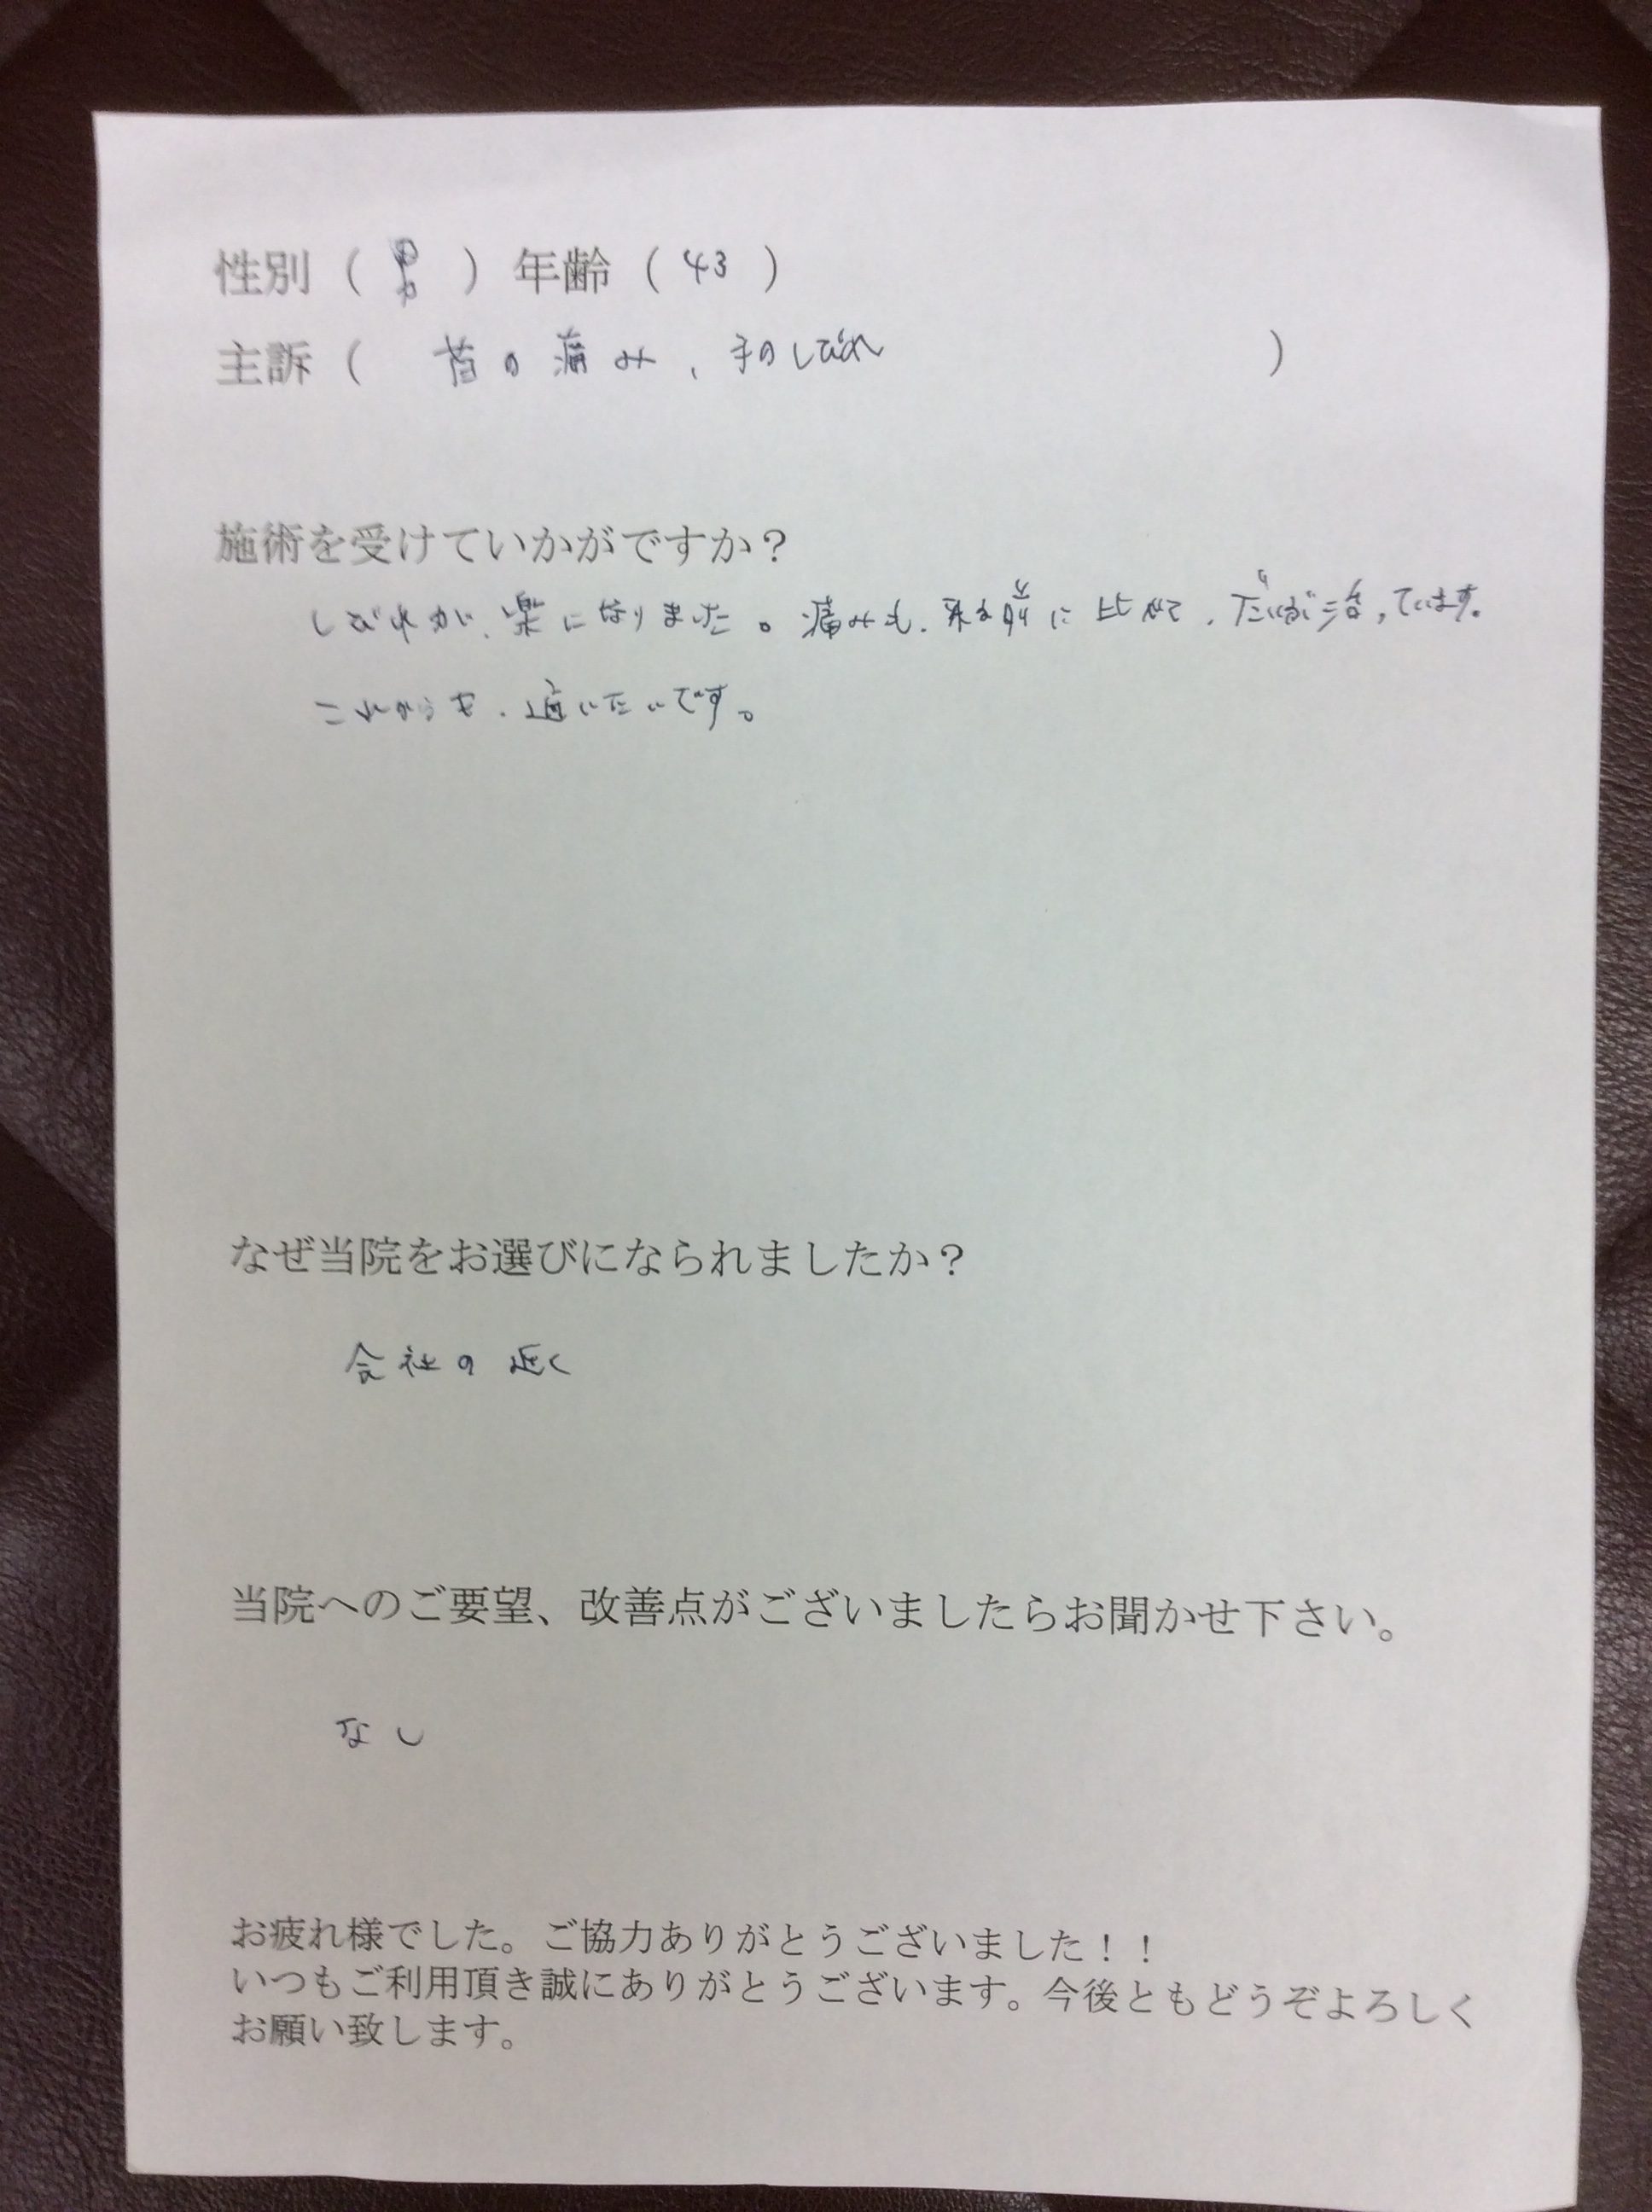 性別（男）年齢（43）
主訴（首の痛み、手のしびれ）
施術を受けていかがですか？
しびれが、楽になりました。痛みも、来る前に比べて、だいぶ治っています。
これからも、通いたいです。
なぜ当院をお選びになられましたか？
会社の近く
当院へのご要望、改善点がございましたらお聞かせ下さい。
なし
お疲れ様でした。ご協力ありがとうございました！！
いつもご利用頂き誠にありがとうございます。今後ともどうぞよろしく
お願い致します。